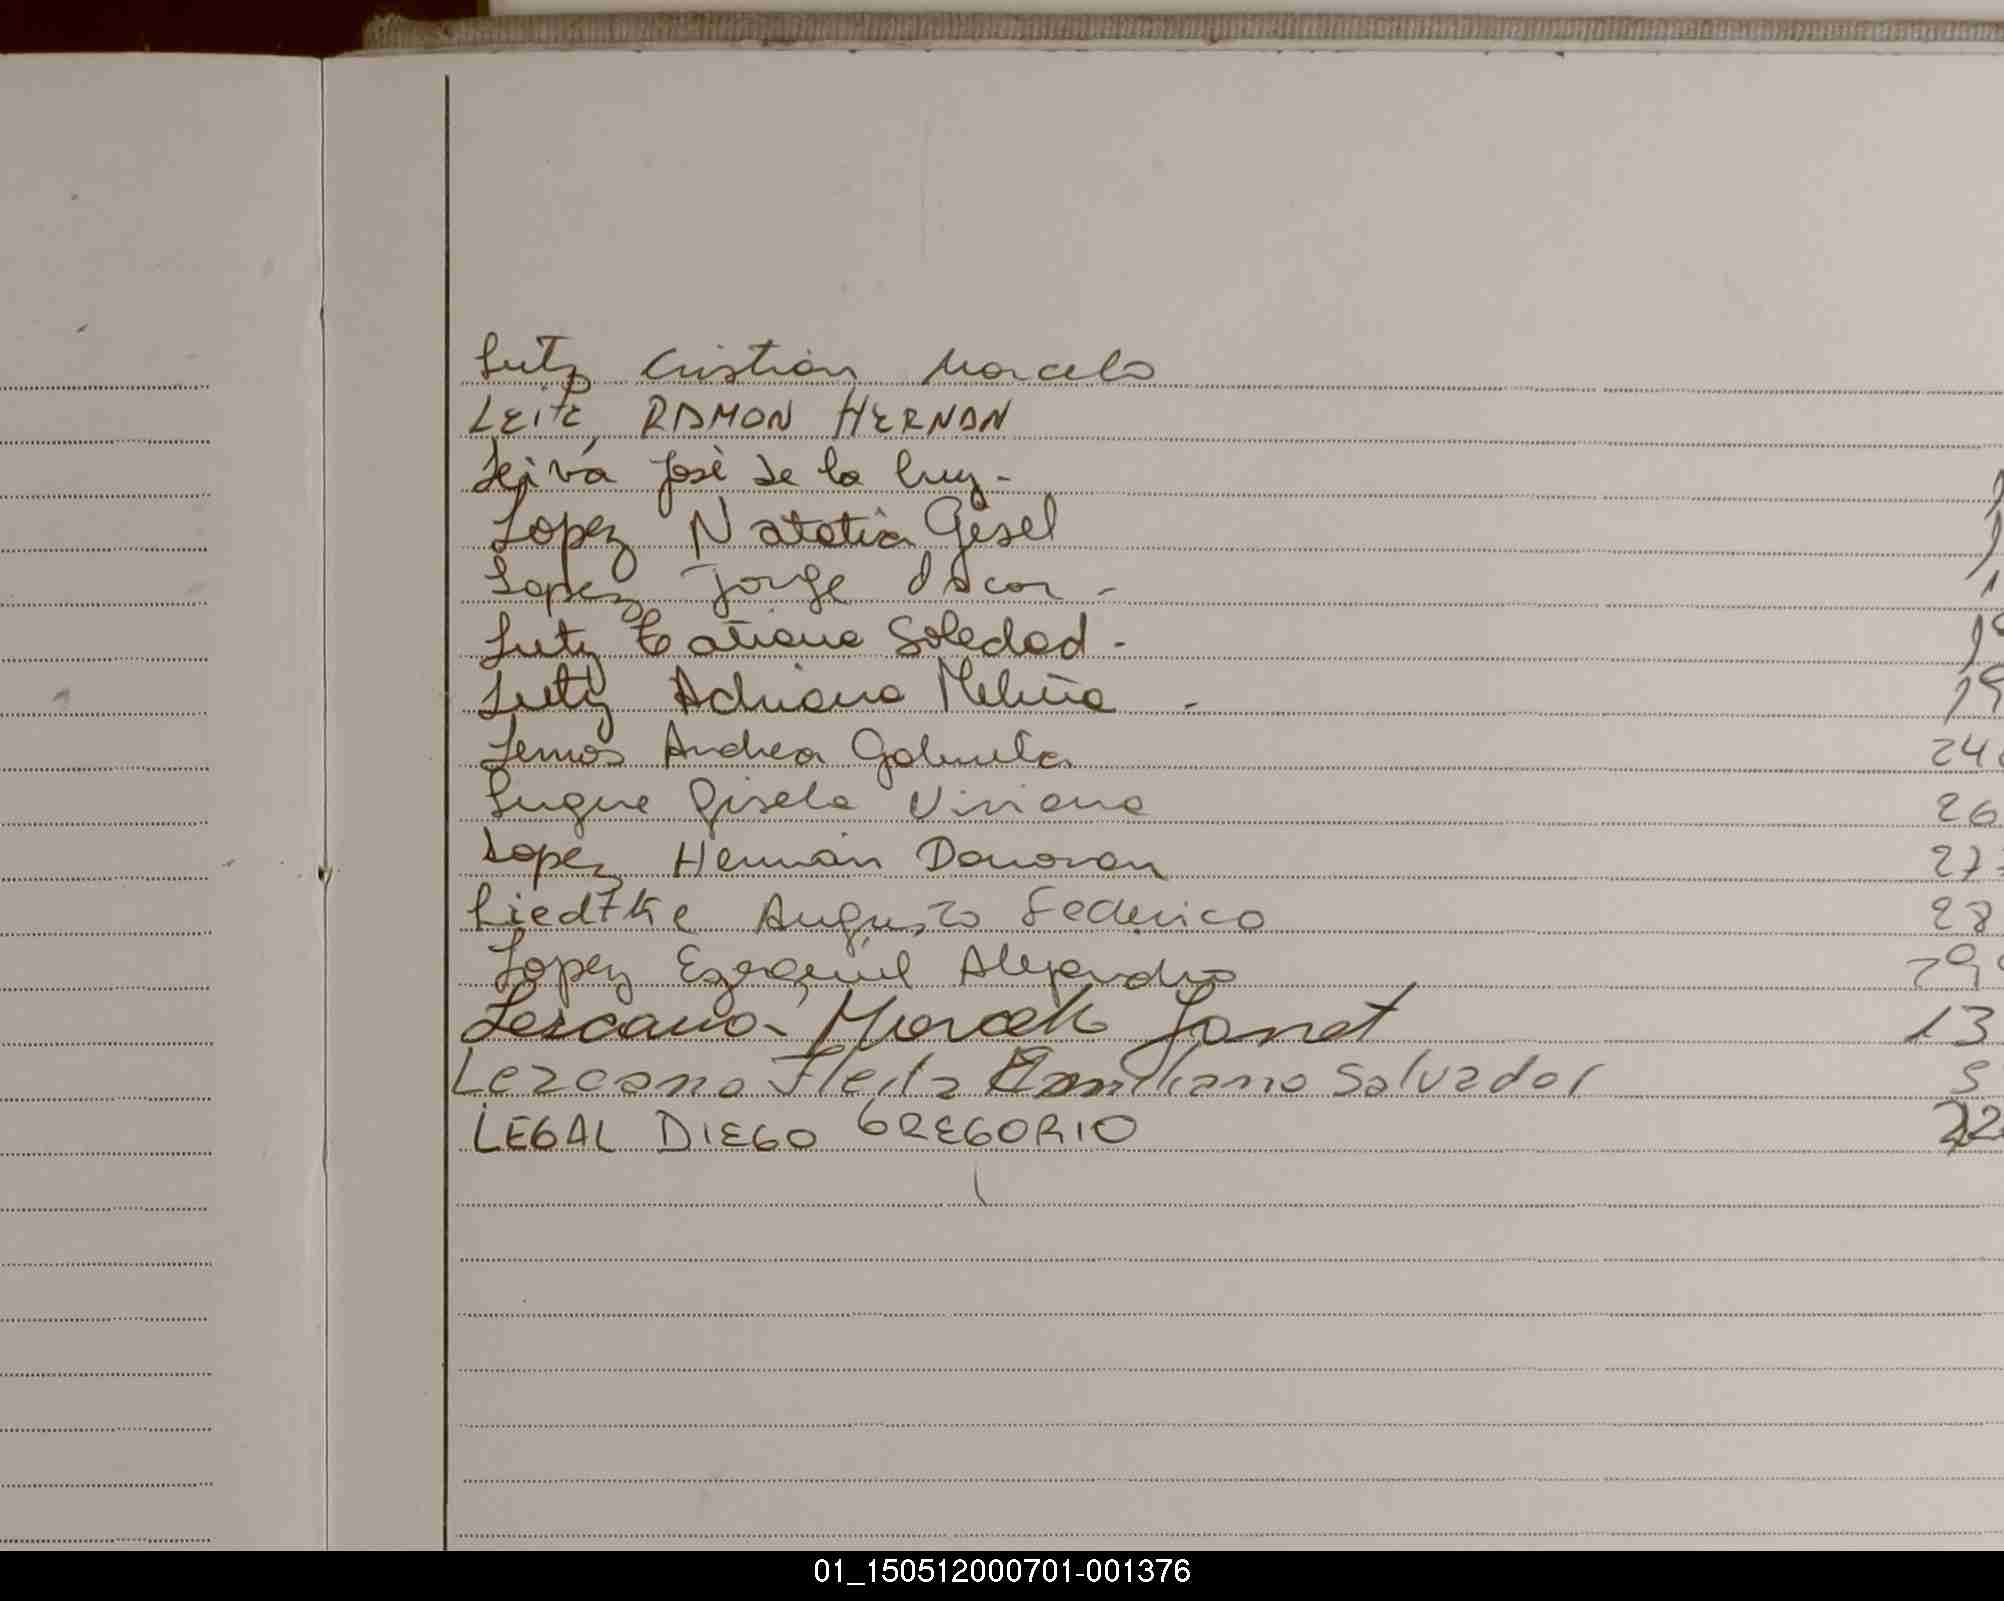 Lutz Cristián Marcelo
LEITE RAMON HERNAN
Leiva José de la Cruz -
Lopez Natalia Gisel
Lopez Jorge Oscar -
Lutz Tatiana Soledad -
Lutz Adriana Melina -
Lemos Andrea Gabriela 24
Luque Gisela Viviana 26
Lopez Hernán Donovan 27
Liedtke Augusto Federico 28
Lopez Ezequiel Alejandro 29
Lezcano Marcela Janet 13
Lezcano Emiliano Salvador
LEGAL DIEGO GREGORIO
01_150512000701-001376